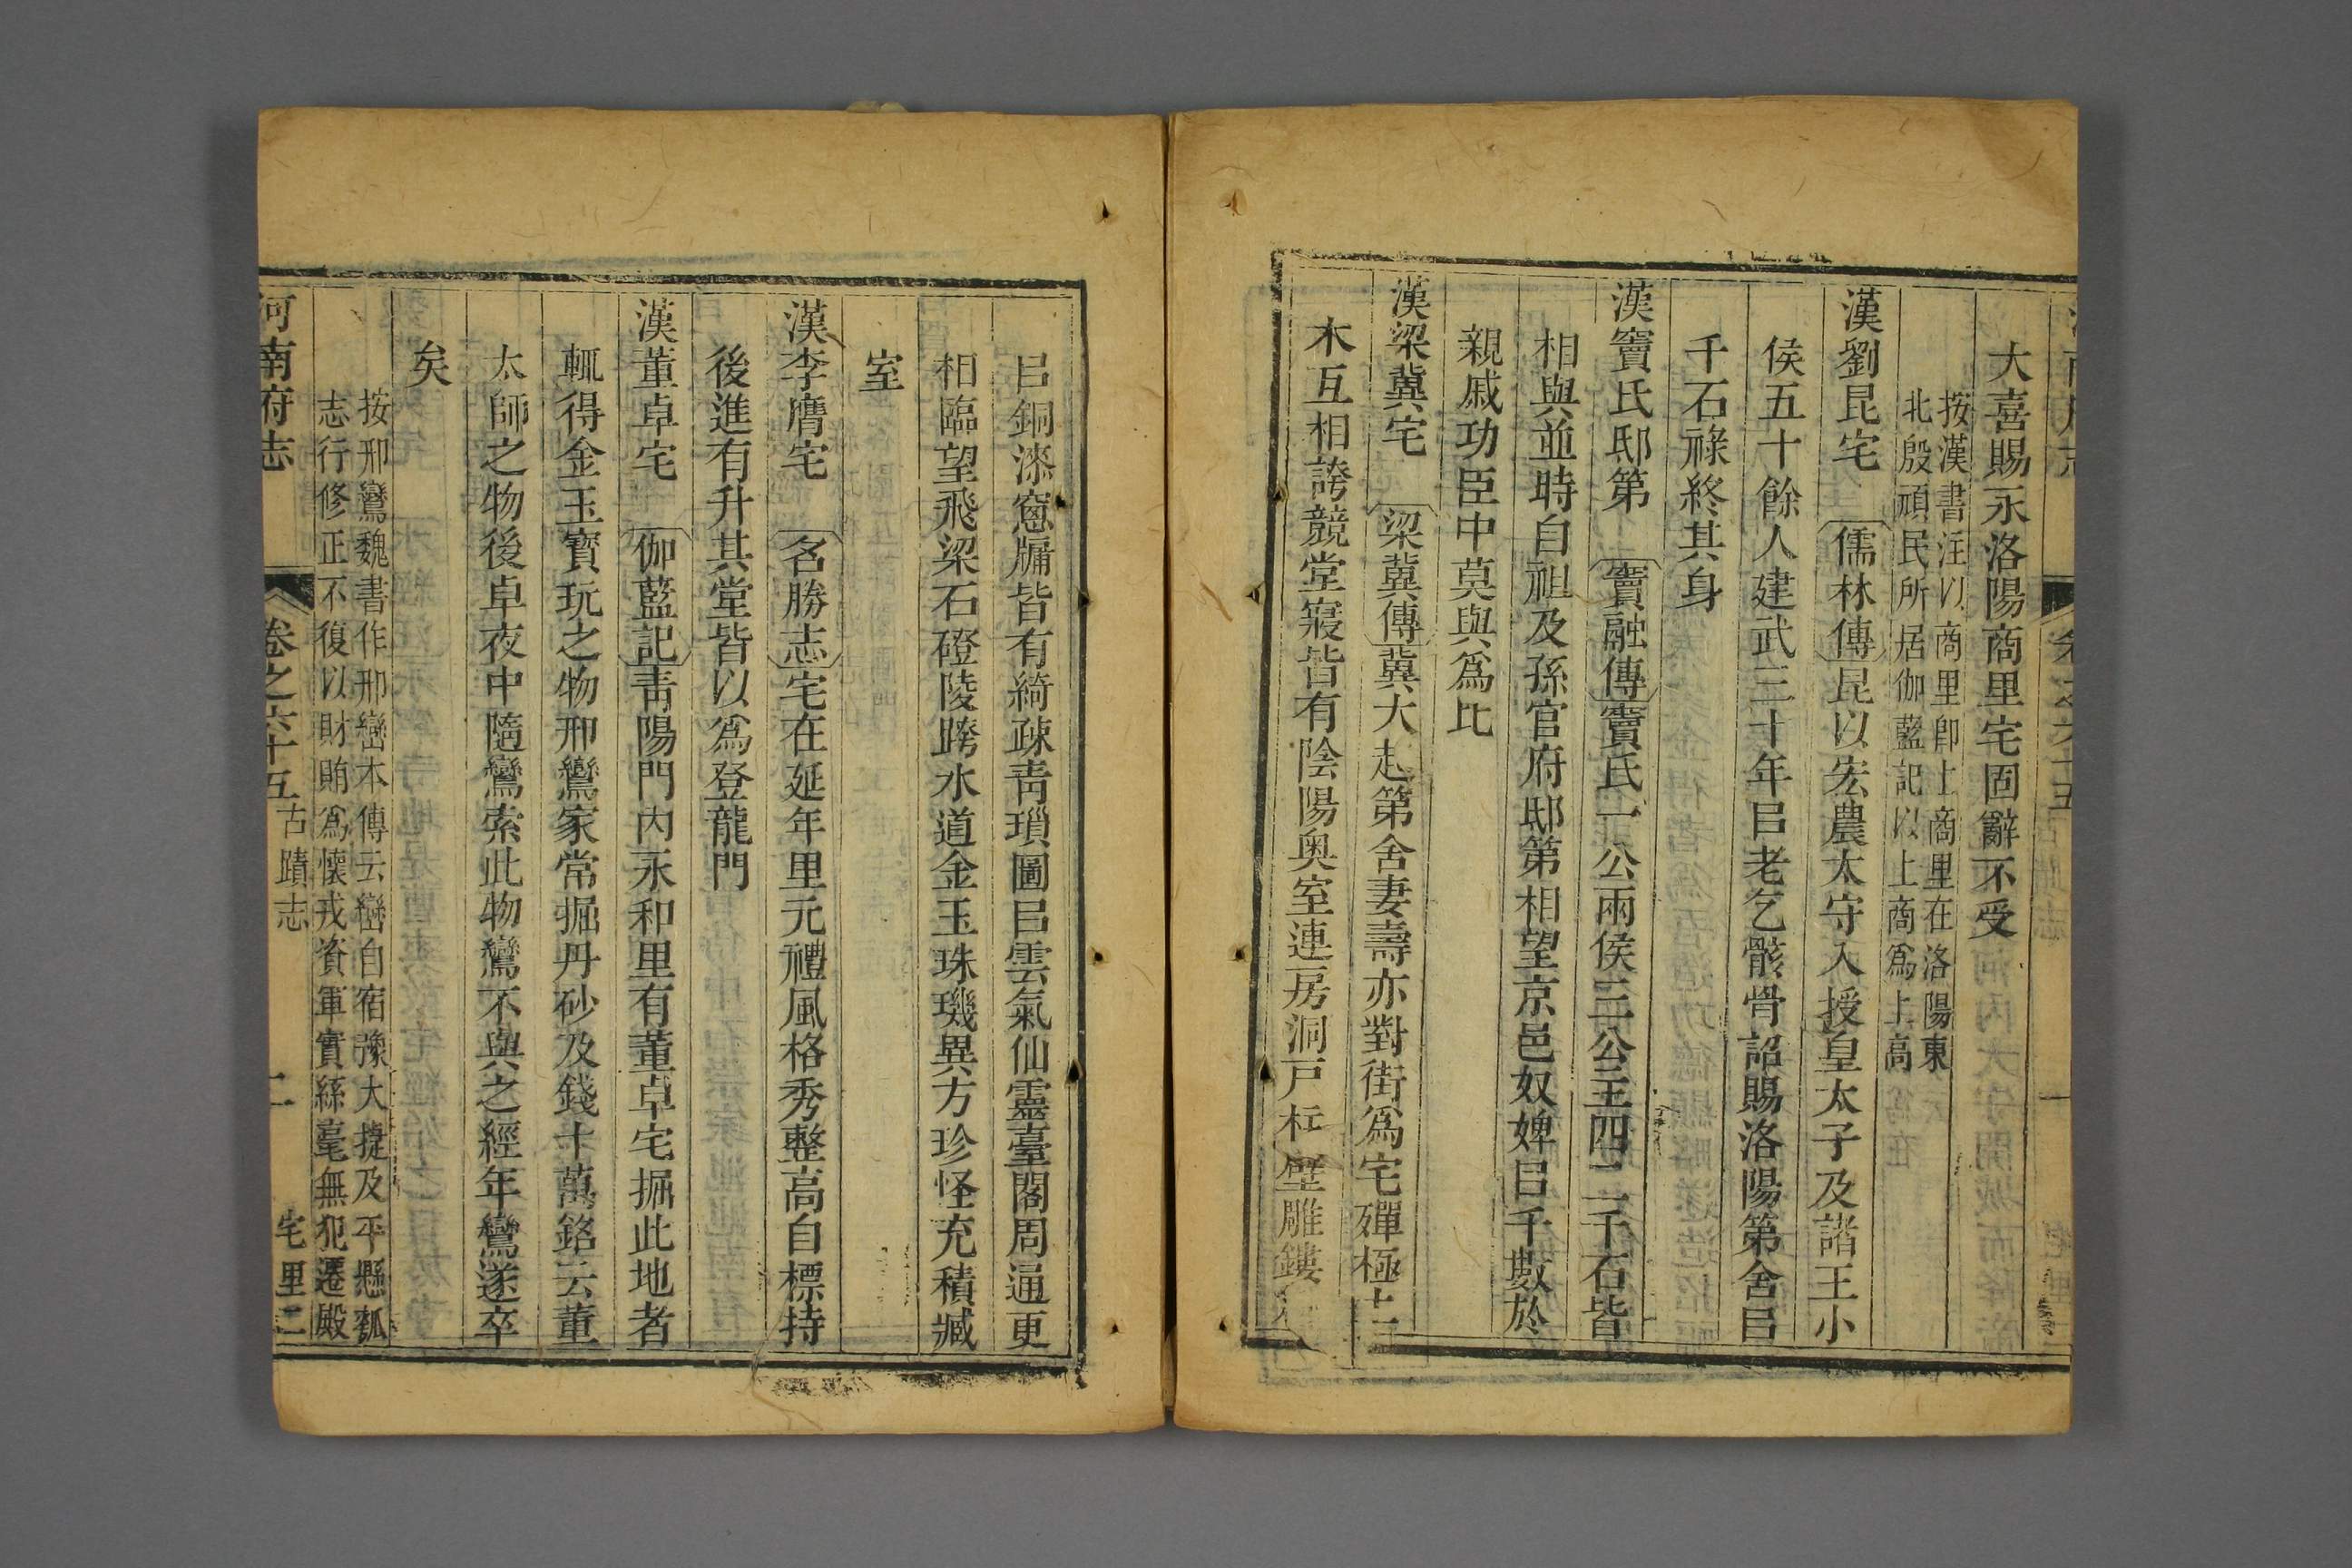 大喜賜永洛陽商里宅固辭不受
按漢書注以商里卽上商里在洛陽東
北殷頑民所居伽藍記以上商爲上高
漢劉昆宅 儒林傳昆以宏農太守入授皇太子及諸王小
侯五十餘人建武三十年㠯老乞骸骨詔賜洛陽第舍㠯
千石祿終其身
漢竇氏邸第 竇融傳竇氏一公兩侯三公主四二千石皆
相與並時自祖及孫官府邸第相望京邑奴婢㠯千數於
親戚功臣中莫與爲比
漢梁冀宅 梁冀傳冀大起第舍妻壽亦對街爲宅殫極土
木互相誇競堂寢皆有陰陽奧室連房洞戸柱壁雕鏤
㠯銅漆窻牖皆有綺疎靑瑣圖㠯雲氣仙靈臺閣周通更
相臨望飛梁石磴陵跨水道金玉珠璣異方珍怪充積臧
室
漢李膺宅 名勝志宅在延年里元禮風格秀整高自標持
後進有升其堂皆以爲登龍門
漢董卓宅 伽藍記靑陽門內永和里有董卓宅掘此地者
輒得金玉寳玩之物邢鸞家常掘丹砂及錢十萬銘云董
太師之物後卓夜中隨鸞索此物鸞不與之經年鸞遂卒
矣
按邢鸞魏書作邢巒本傳云巒自宿豫大捷及平懸瓠
志行修正不復以財賄爲懷戎資軍實絲毫無犯遷殿
河南府志 卷之六十五 古蹟志 二 宅里二